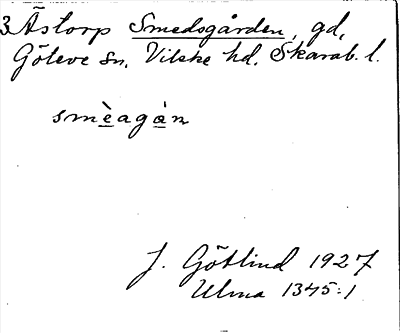 3 Åstorp Smedsgården, gd,
Göteve sn, Vilske hd, Skarab. l.
smèagàn
J. Götlind 1927
Ulma 1345:1